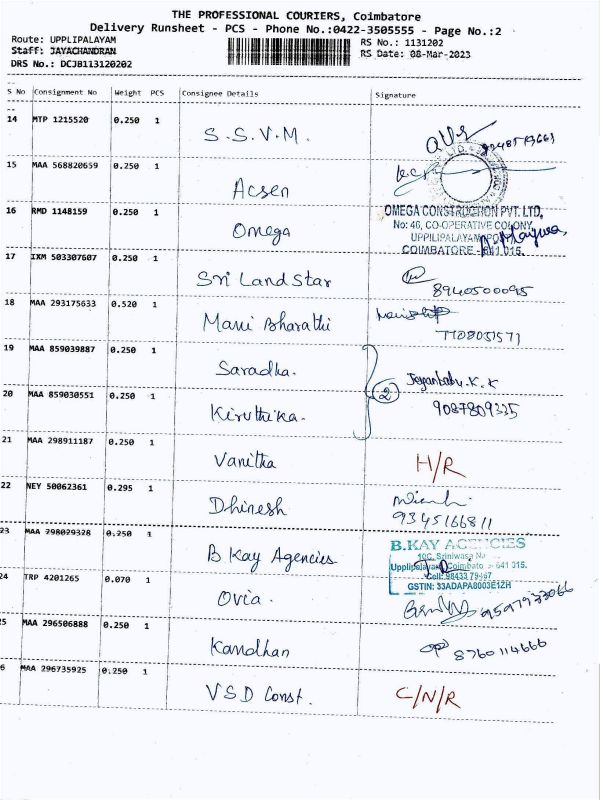 THE PROFESSIONAL COURIERS, Coimbatore
Delivery Runsheet - PCS - Phone No.:0422-3505555 - Page No.:2
Route: UPPLIPALAYAM
RS No.: 1131202
Staff: JAYACHANDRAN
RS Date: 08-Mar-2023
DRS No.: DCJB113120202
S No Consignment No Weight PCS Consignee Details Signature
14 MTP 1215520 0.250 1 S.S.V.M.
15 MAA 568820659 0.250 1 Acsen
16 RMD 1148159 0.250 1 Omega
OMEGA CONSTRUCTION PVT. LTD,
No: 46, CO-OPERATIVE COLONY,
UPPILIPALAYAM
COIMBATORE - 641 015.
17 IXM 503307607 0.250 1 Sri Land Star
8940500095
18 MAA 293175633 0.520 1 Mani Bharathi
7708051571
19 MAA 859039887 0.250 1 Saradha.
2 Jeyanbabu.K.K
20 MAA 859030551 0.250 1 Kiruthika.
9087809335
21 MAA 298911187 0.250 1 Vanitha H/R
22 NEY 50062361 0.295 1 Dhinesh
9345166811
23 MAA 798029328 0.250 1 B Kay Agencies
B.KAY AGENCIES
10C, Srinivasa
Uppilipalayam, Coimbatore - 641 015.
Cell: 98433 79467
GSTIN: 33ADAPA8003E1ZH
24 TRP 4201265 0.070 1 Ovia.
9597933066
25 MAA 296506888 0.250 1 Kandhan 8760114666
6 MAA 296735925 0.250 1 VSD Const. C/N/R